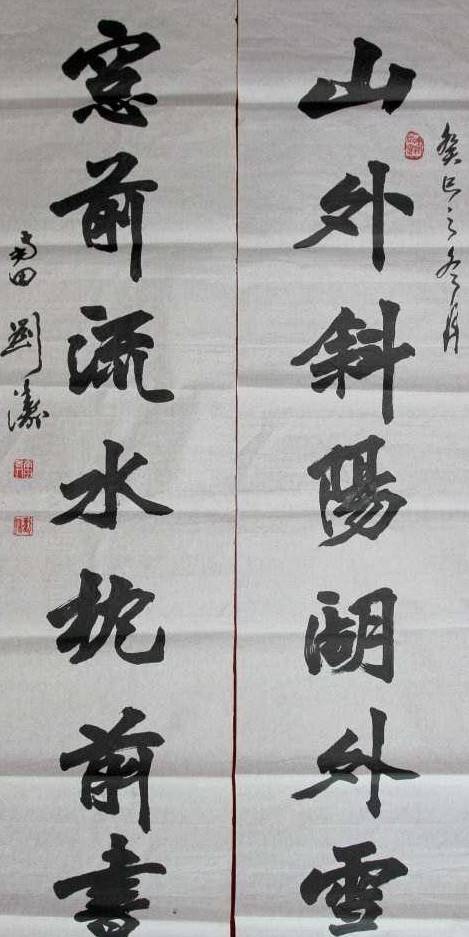 癸巳之冬月
山外斜陽湖外雪
窓前流水枕前書
劉濤